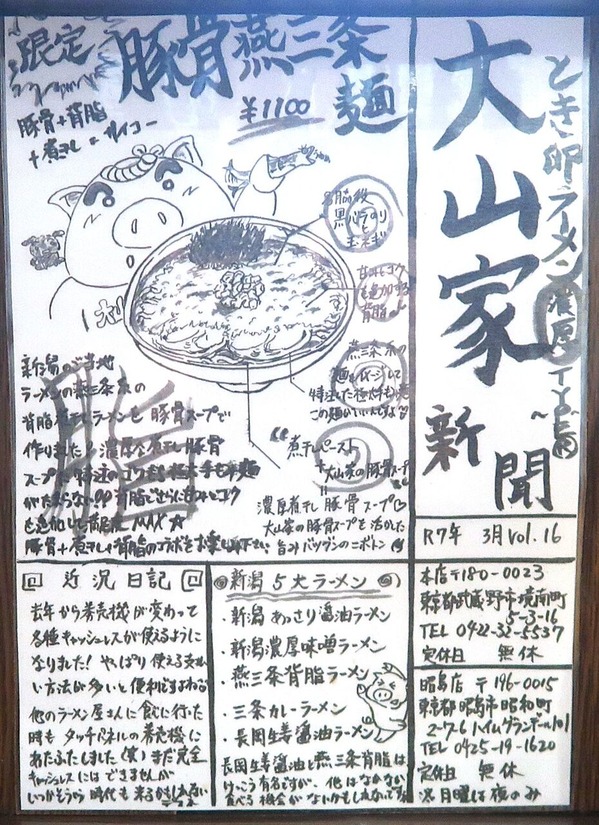 限定
豚骨燕三条
麺
¥1100
豚骨+背脂
+煮干し=サイコー
大山家
新聞
とき卵ラーメン
濃厚
R7年 3月 vol.16
本店 〒180-0023
東京都武蔵野市境南町
5-3-16
TEL 0422-32-5537
定休日 無休
昭島店 〒196-0015
東京都昭島市昭和町
2-7-6 ハイムグランデール101
TEL 0425-19-1620
定休日 無休
月曜は夜のみ
黒バラのり
と
玉ネギ
甘味とコク
を追加する
背脂
燕三条の
特注した極太手もみ麺
この麺がいいんです
煮干しペースト
+大山家の豚骨スープ
濃厚煮干し豚骨スープ♡
大山家の豚骨スープを活かした
旨みバツグンのニボトン
脂
新潟のご当地
ラーメンの燕三条系の
背脂煮干しラーメンを豚骨スープで
作りました!濃厚な煮干し豚骨
スープに特注のコクもち極太手もみ麺
がたまらない!!背脂でさらに甘みとコク
を追加して満足度MAX☆
豚骨+煮干し+背脂のコラボをお楽しみ下さい
近況日記
去年から券売機が変わって
各種キャッシュレスが使えるように
なりました!やっぱり使える支払
い方法が多いと便利ですよねる
他のラーメン屋さんに食べに行った
時もタッチパネルの券売機に
あたふたしました(笑)まだ完全
キャッシュレスにはできませんが
いつかそういう時代も来るかもしれない
新潟5大ラーメン
・新潟あっさり醤油ラーメン
・新潟濃厚味噌ラーメン
・燕三条背脂ラーメン
・三条カレーラーメン
・長岡生姜醤油ラーメン
長岡生姜醤油と燕三条背脂は
けっこう有名ですが、他はなかなか
食べる機会がないかもしれないです